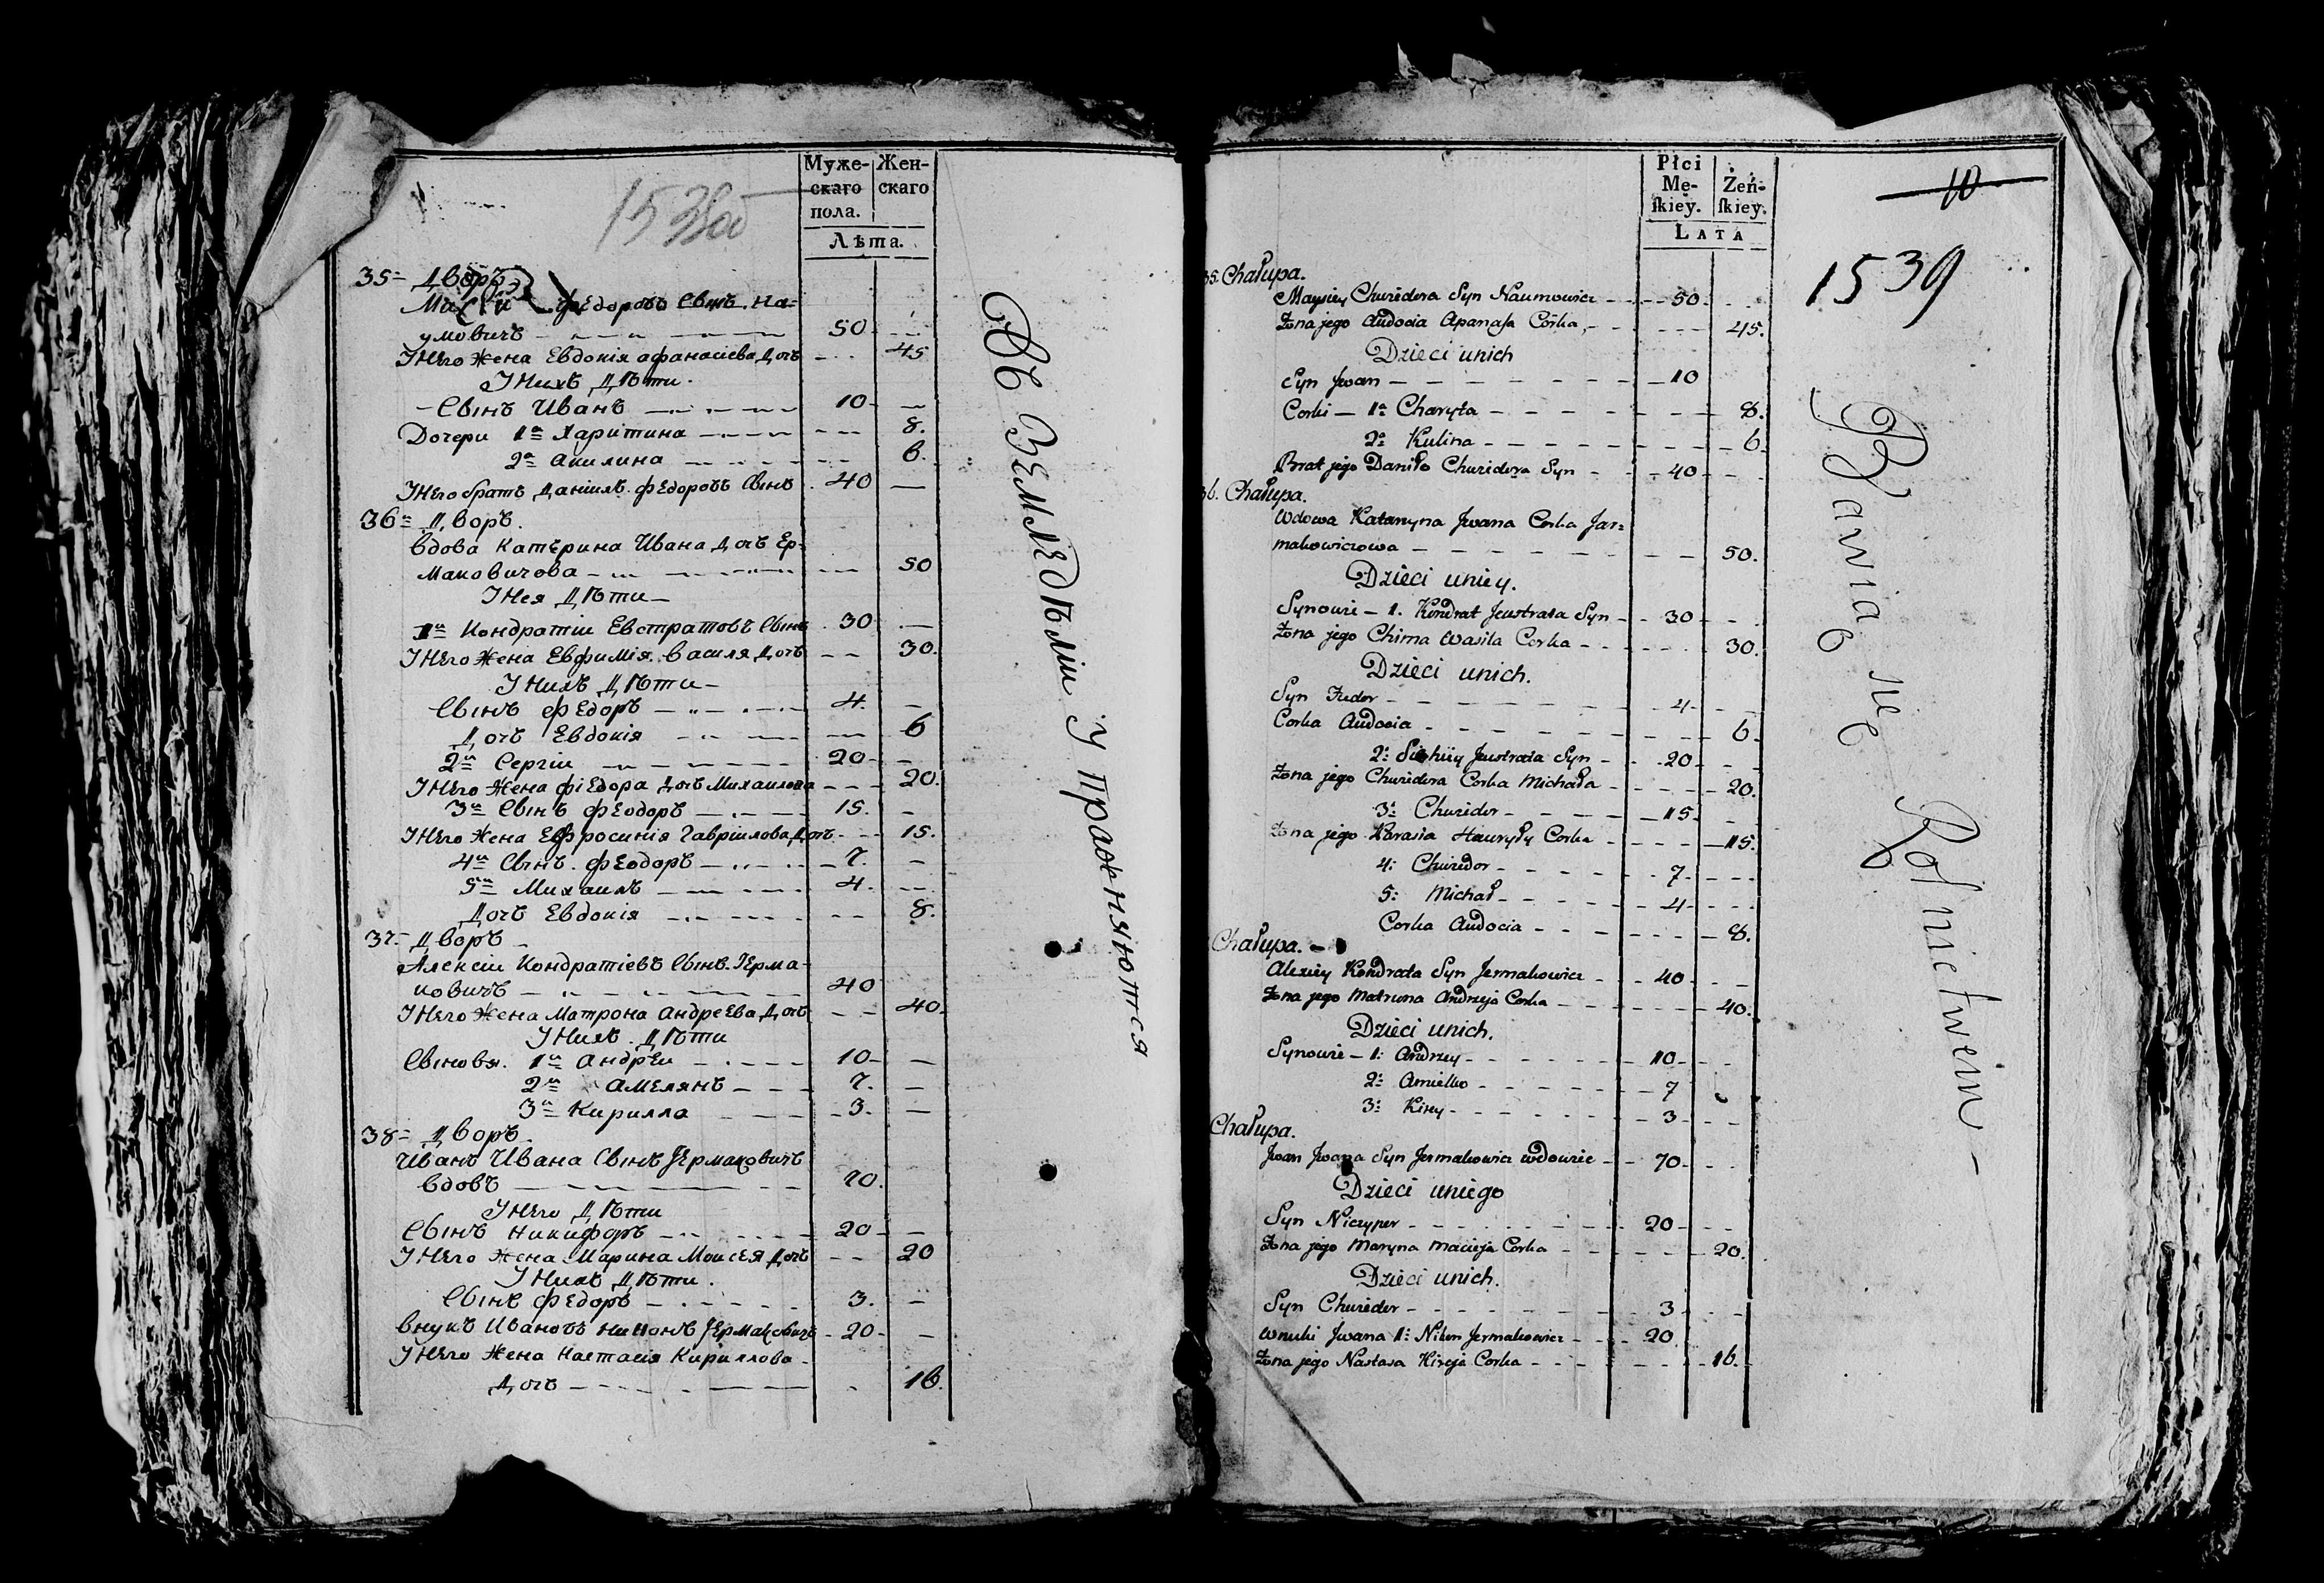 Муже-
скаго
пола.
Жен-
скаго
Лѣта.
35 Дворъ
Федоровъ Сынъ На-
умовичъ 50
У Него Жена Евдокія Афанасіева Дочь 45
У Нихъ Дѣти.
Сынъ Иванъ 10
Дочери 1я Харитина 8.
2я Акилина 6.
У Него братъ Даніилъ Федоровъ Сынъ 40
36 Дворъ.
Вдова Катерина Ивана Дочь Ер-
маковичова 50
У Нея Дѣти
1й Кондратіи Евстратовъ Сынъ 30
У Него Жена Евфимія Василя Дочь 30.
У Нихъ Дѣти
Сынъ Федоръ 4.
Дочь Евдокія 6
2й Сергіи 20
У Него Жена Фіедора Дочь Михаилова 20.
3й Сынъ Феодоръ 15.
У Него Жена Ефросинія Гавріилова Дочь 15.
4й Сынъ Феодоръ 7.
5й Михаилъ 4.
Дочь Евдокія 8.
37 Дворъ
Алексіи Кондратіевъ Сынъ Іерма-
ковичъ 40
У Него Жена Матрона Андреева Дочь 40.
У Нихъ Дѣти
Сыновя. 1й Андреи 10
2й Амелянъ 7.
3й Кирилла 3.
38 Дворъ.
Иванъ Ивана Сынъ Іермаковичъ
вдовъ 70.
У Него Дѣти
Сынъ Никифоръ 20
У Него Жена Марина Моисея Дочь 20
У Нихъ Дѣти.
Сынъ Федоръ 3.
Внукъ Ивановъ Никонъ Іермаковичъ 20
У Него Жена Настасія Кирилова
Дочь 16.
Въ Земледѣліи Упражняются
Płci
Mę-
ſkiey.
Żeń-
ſkiey.
LATA
10
1539
35. Chałupa.
Maysiey Chwiedora Syn Naumowicz 50.
Żona jego Audocia Apanaſa Corka 45.
Dzieci unich
Syn Jwan 10
Corki 1a Charyta 8.
2a Kulina 6.
Brat jego Daniło Chwiedora Syn 40
36. Chałupa.
Wdowa Katarzyna Jwana Corka Jar-
makowiczowa 50.
Dzieci uniey.
Synowie 1. Kondrat Jeustrata Syn 30
Żona jego Chima Wasila Corka 30.
Dzieci unich.
Syn Fudor 4
Corka Audocia 6.
2: Jeustrata Syn 20
Żona jego Chwiedora Corka Michała 20.
3: Chwiedor 15
Żona jego Hauryły Corka 15.
4: Chwiedor 7.
5: Michał 4
Corka Audocia 8.
Chałupa.
Alexiey Kondrata Syn Jermakowicz 40
Żona jego Matruna Andrzeja Corka 40.
Dzieci unich.
Synowie 1: Andrzey 10
2: Amielko 7
3: Kirey 3
Chałupa.
Jwan Jwana Syn Jermakowicz wdowiec 70
Dzieci uniego
Syn Niczyper 20
Żona jego Maryna Macieja Corka 20.
Dzieci unich.
Syn Chwiedor 3
Wnuki Jwana 1: Nikon Jermakowicz 20
Żona jego Nastasa Kireja Corka 16.
Bawią się Rolnictwem